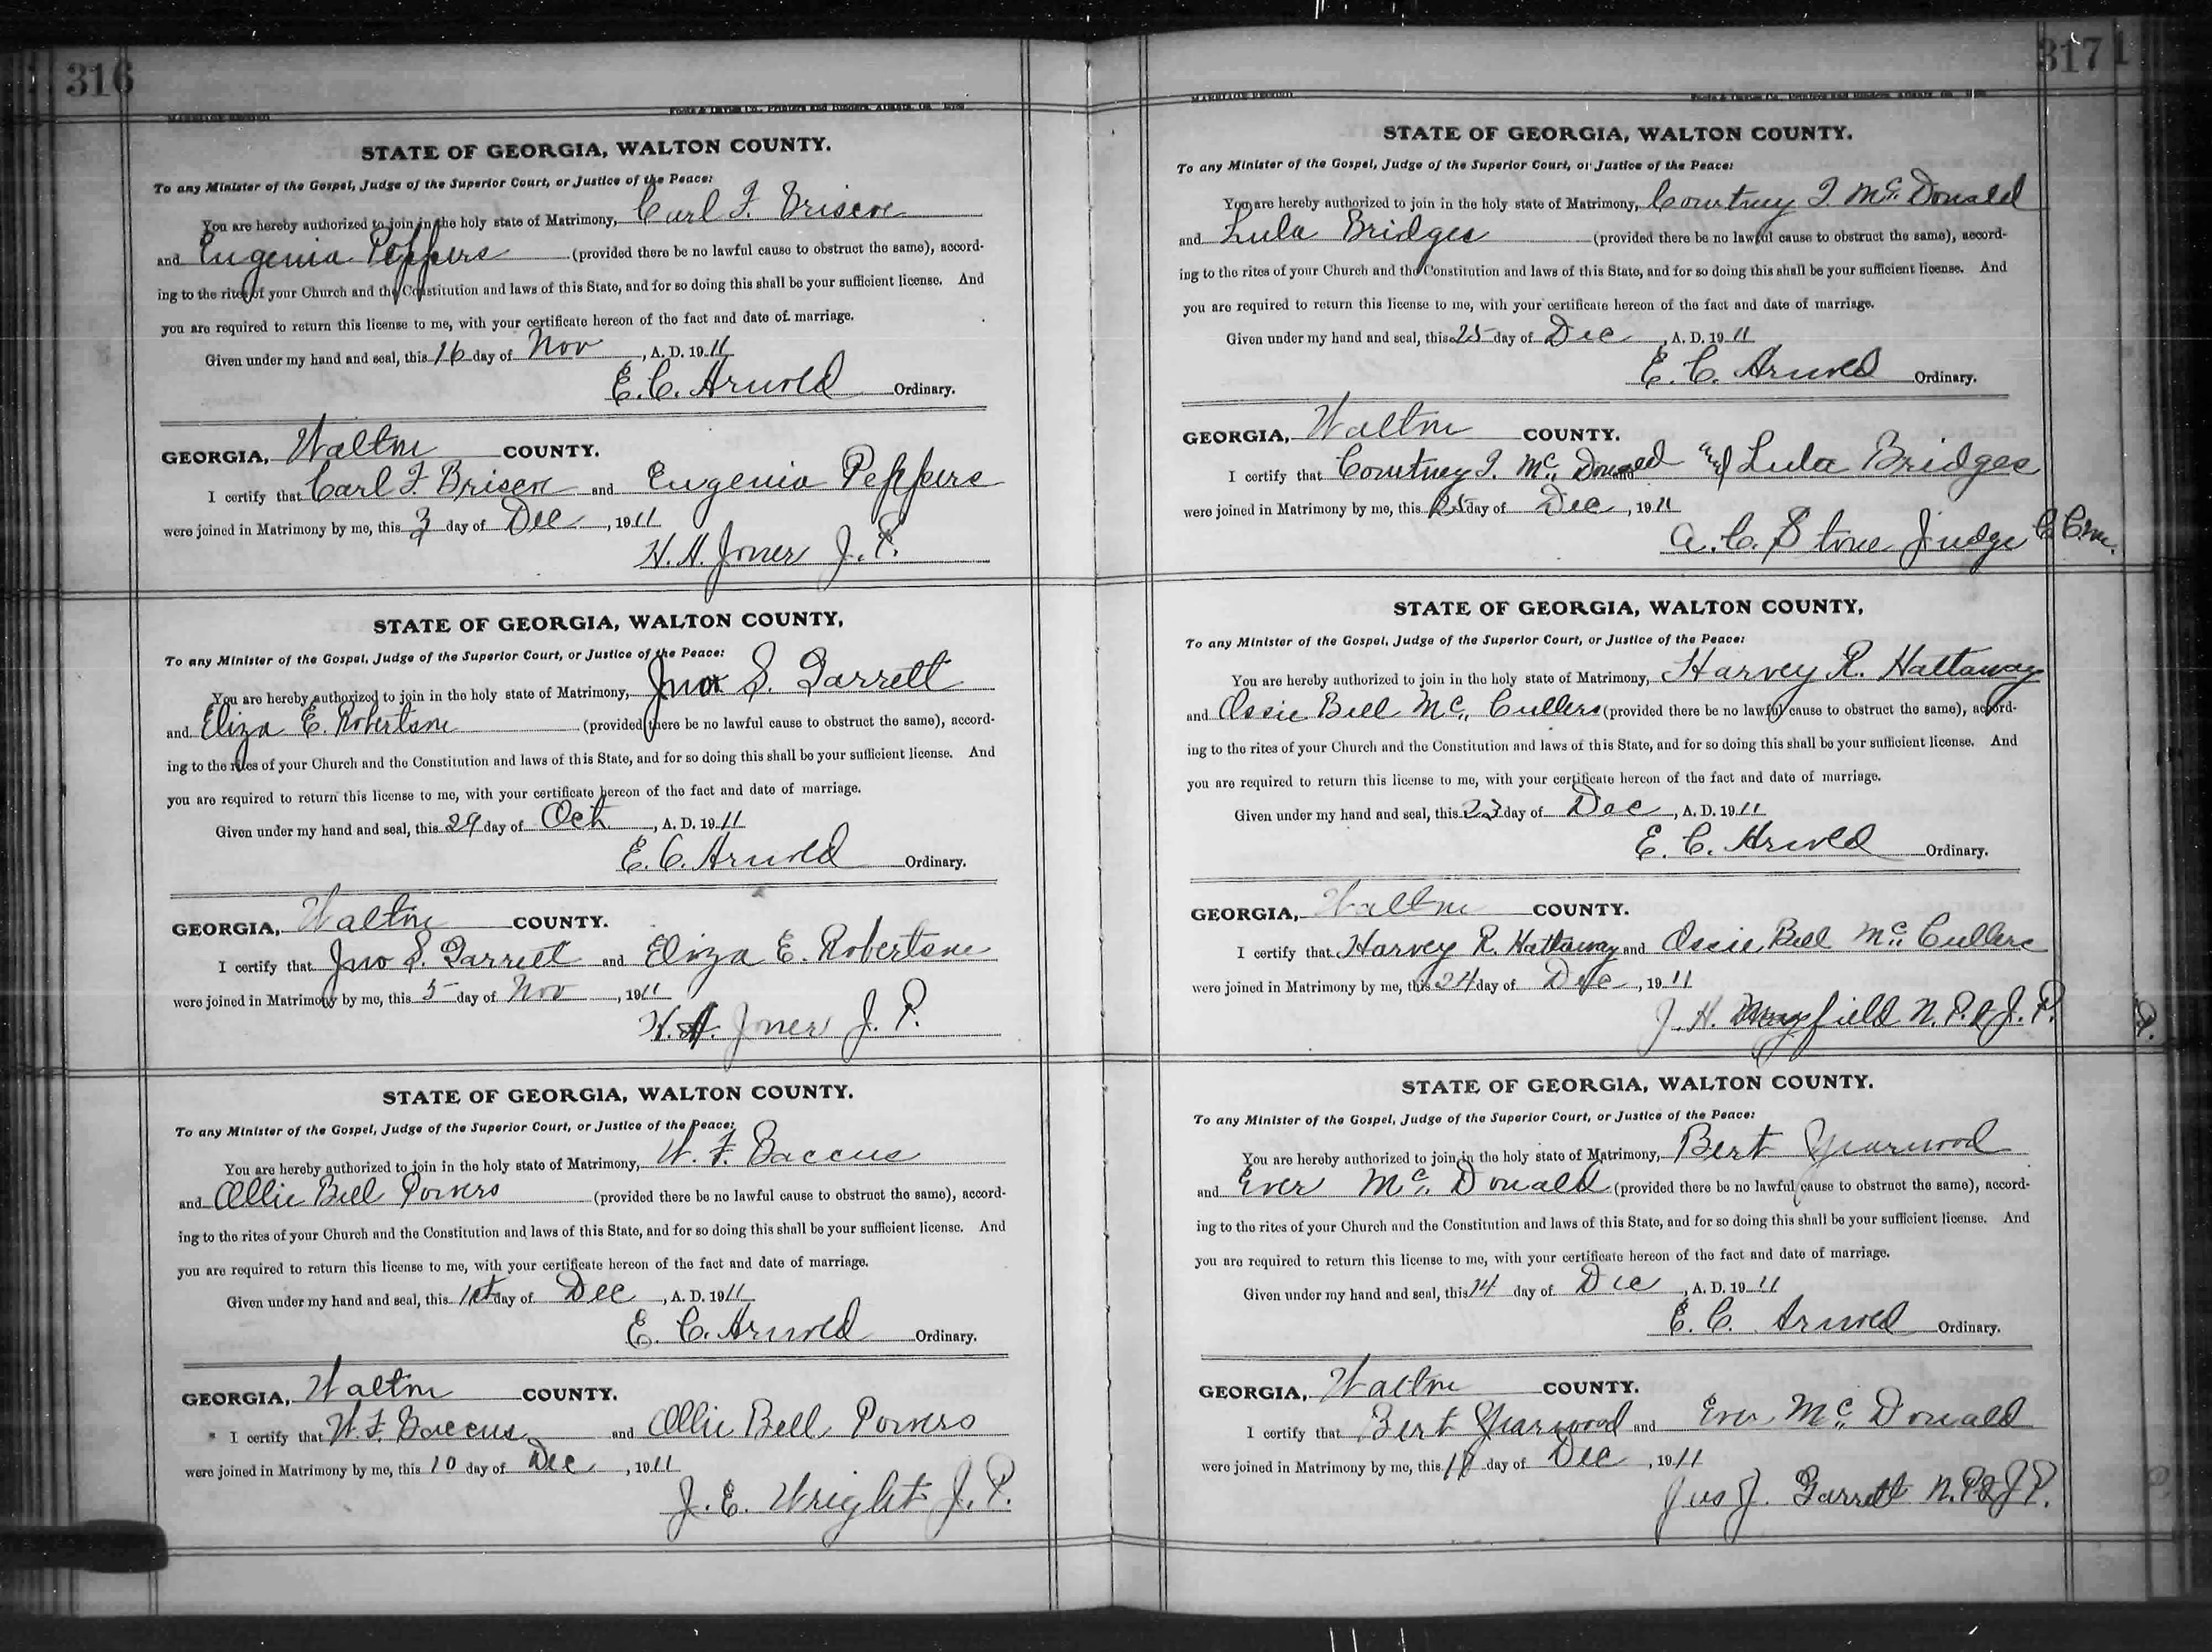 316
MARRIAGE RECORD
Foote & Davies Co., Printers and Binders, Atlanta, Ga.
STATE OF GEORGIA, WALTON COUNTY.
To any Minister of the Gospel, Judge of the Superior Court, or Justice of the Peace:
You are hereby authorized to join in the holy state of Matrimony, Carl F. Briscoe
and Eugenia Peppers (provided there be no lawful cause to obstruct the same), accord-
ing to the rites of your Church and the Constitution and laws of this State, and for so doing this shall be your sufficient license. And
you are required to return this license to me, with your certificate hereon of the fact and date of marriage.
Given under my hand and seal, this 16 day of Nov, A. D. 1911
E. C. Arnold Ordinary.
GEORGIA, Walton COUNTY.
I certify that Carl F. Briscoe and Eugenia Peppers
were joined in Matrimony by me, this 3 day of Dec, 1911
H. A. Jones J. P.
STATE OF GEORGIA, WALTON COUNTY,
To any Minister of the Gospel, Judge of the Superior Court, or Justice of the Peace:
You are hereby authorized to join in the holy state of Matrimony, Jno S. Garrett
and Eliza E. Robertson (provided there be no lawful cause to obstruct the same), accord-
ing to the rites of your Church and the Constitution and laws of this State, and for so doing this shall be your sufficient license. And
you are required to return this license to me, with your certificate hereon of the fact and date of marriage.
Given under my hand and seal, this 29 day of Oct, A. D. 1911
E. C. Arnold Ordinary.
GEORGIA, Walton COUNTY.
I certify that Jno S. Garrett and Eliza E. Robertson
were joined in Matrimony by me, this 5 day of Nov, 1911
H. A. Jones J. P.
STATE OF GEORGIA, WALTON COUNTY.
To any Minister of the Gospel, Judge of the Superior Court, or Justice of the Peace:
You are hereby authorized to join in the holy state of Matrimony, W. F. Baccus
and Ollie Bell Powers (provided there be no lawful cause to obstruct the same), accord-
ing to the rites of your Church and the Constitution and laws of this State, and for so doing this shall be your sufficient license. And
you are required to return this license to me, with your certificate hereon of the fact and date of marriage.
Given under my hand and seal, this 1st day of Dec, A. D. 1911
E. C. Arnold Ordinary.
GEORGIA, Walton COUNTY.
I certify that W. F. Baccus and Ollie Bell Powers
were joined in Matrimony by me, this 10 day of Dec, 1911
J. E. Wright J. P.
317
MARRIAGE RECORD
Foote & Davies Co., Printers and Binders, Atlanta, Ga.
STATE OF GEORGIA, WALTON COUNTY.
To any Minister of the Gospel, Judge of the Superior Court, or Justice of the Peace:
You are hereby authorized to join in the holy state of Matrimony, Courtney I. McDonald
and Lula Bridges (provided there be no lawful cause to obstruct the same), accord-
ing to the rites of your Church and the Constitution and laws of this State, and for so doing this shall be your sufficient license. And
you are required to return this license to me, with your certificate hereon of the fact and date of marriage.
Given under my hand and seal, this 25 day of Dec, A. D. 1911
E. C. Arnold Ordinary.
GEORGIA, Walton COUNTY.
I certify that Courtney I. McDonald and Lula Bridges
were joined in Matrimony by me, this 25 day of Dec, 1911
A. C. Stone Judge
STATE OF GEORGIA, WALTON COUNTY,
To any Minister of the Gospel, Judge of the Superior Court, or Justice of the Peace:
You are hereby authorized to join in the holy state of Matrimony, Harvey R. Hattaway
and Ossie Bell McCullers (provided there be no lawful cause to obstruct the same), accord-
ing to the rites of your Church and the Constitution and laws of this State, and for so doing this shall be your sufficient license. And
you are required to return this license to me, with your certificate hereon of the fact and date of marriage.
Given under my hand and seal, this 23 day of Dec, A. D. 1911
E. C. Arnold Ordinary.
GEORGIA, Walton COUNTY.
I certify that Harvey R. Hattaway and Ossie Bell McCullers
were joined in Matrimony by me, this 24 day of Dec, 1911
J. H. Mayfield N. P. & J. P.
STATE OF GEORGIA, WALTON COUNTY.
To any Minister of the Gospel, Judge of the Superior Court, or Justice of the Peace:
You are hereby authorized to join in the holy state of Matrimony, Bert Yearwood
and Ever McDonald (provided there be no lawful cause to obstruct the same), accord-
ing to the rites of your Church and the Constitution and laws of this State, and for so doing this shall be your sufficient license. And
you are required to return this license to me, with your certificate hereon of the fact and date of marriage.
Given under my hand and seal, this 14 day of Dec, A. D. 1911
E. C. Arnold Ordinary.
GEORGIA, Walton COUNTY.
I certify that Bert Yearwood and Ever McDonald
were joined in Matrimony by me, this day of Dec, 1911
Jas J. Garrett N. P. & J. P.